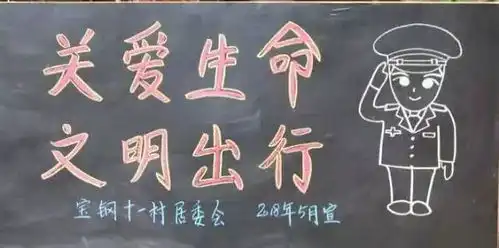 关爱生命
文明出行
宝钢十一村居委会 2018年5月宣